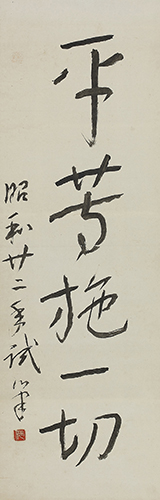 平等施一切
昭和廿二季試筆